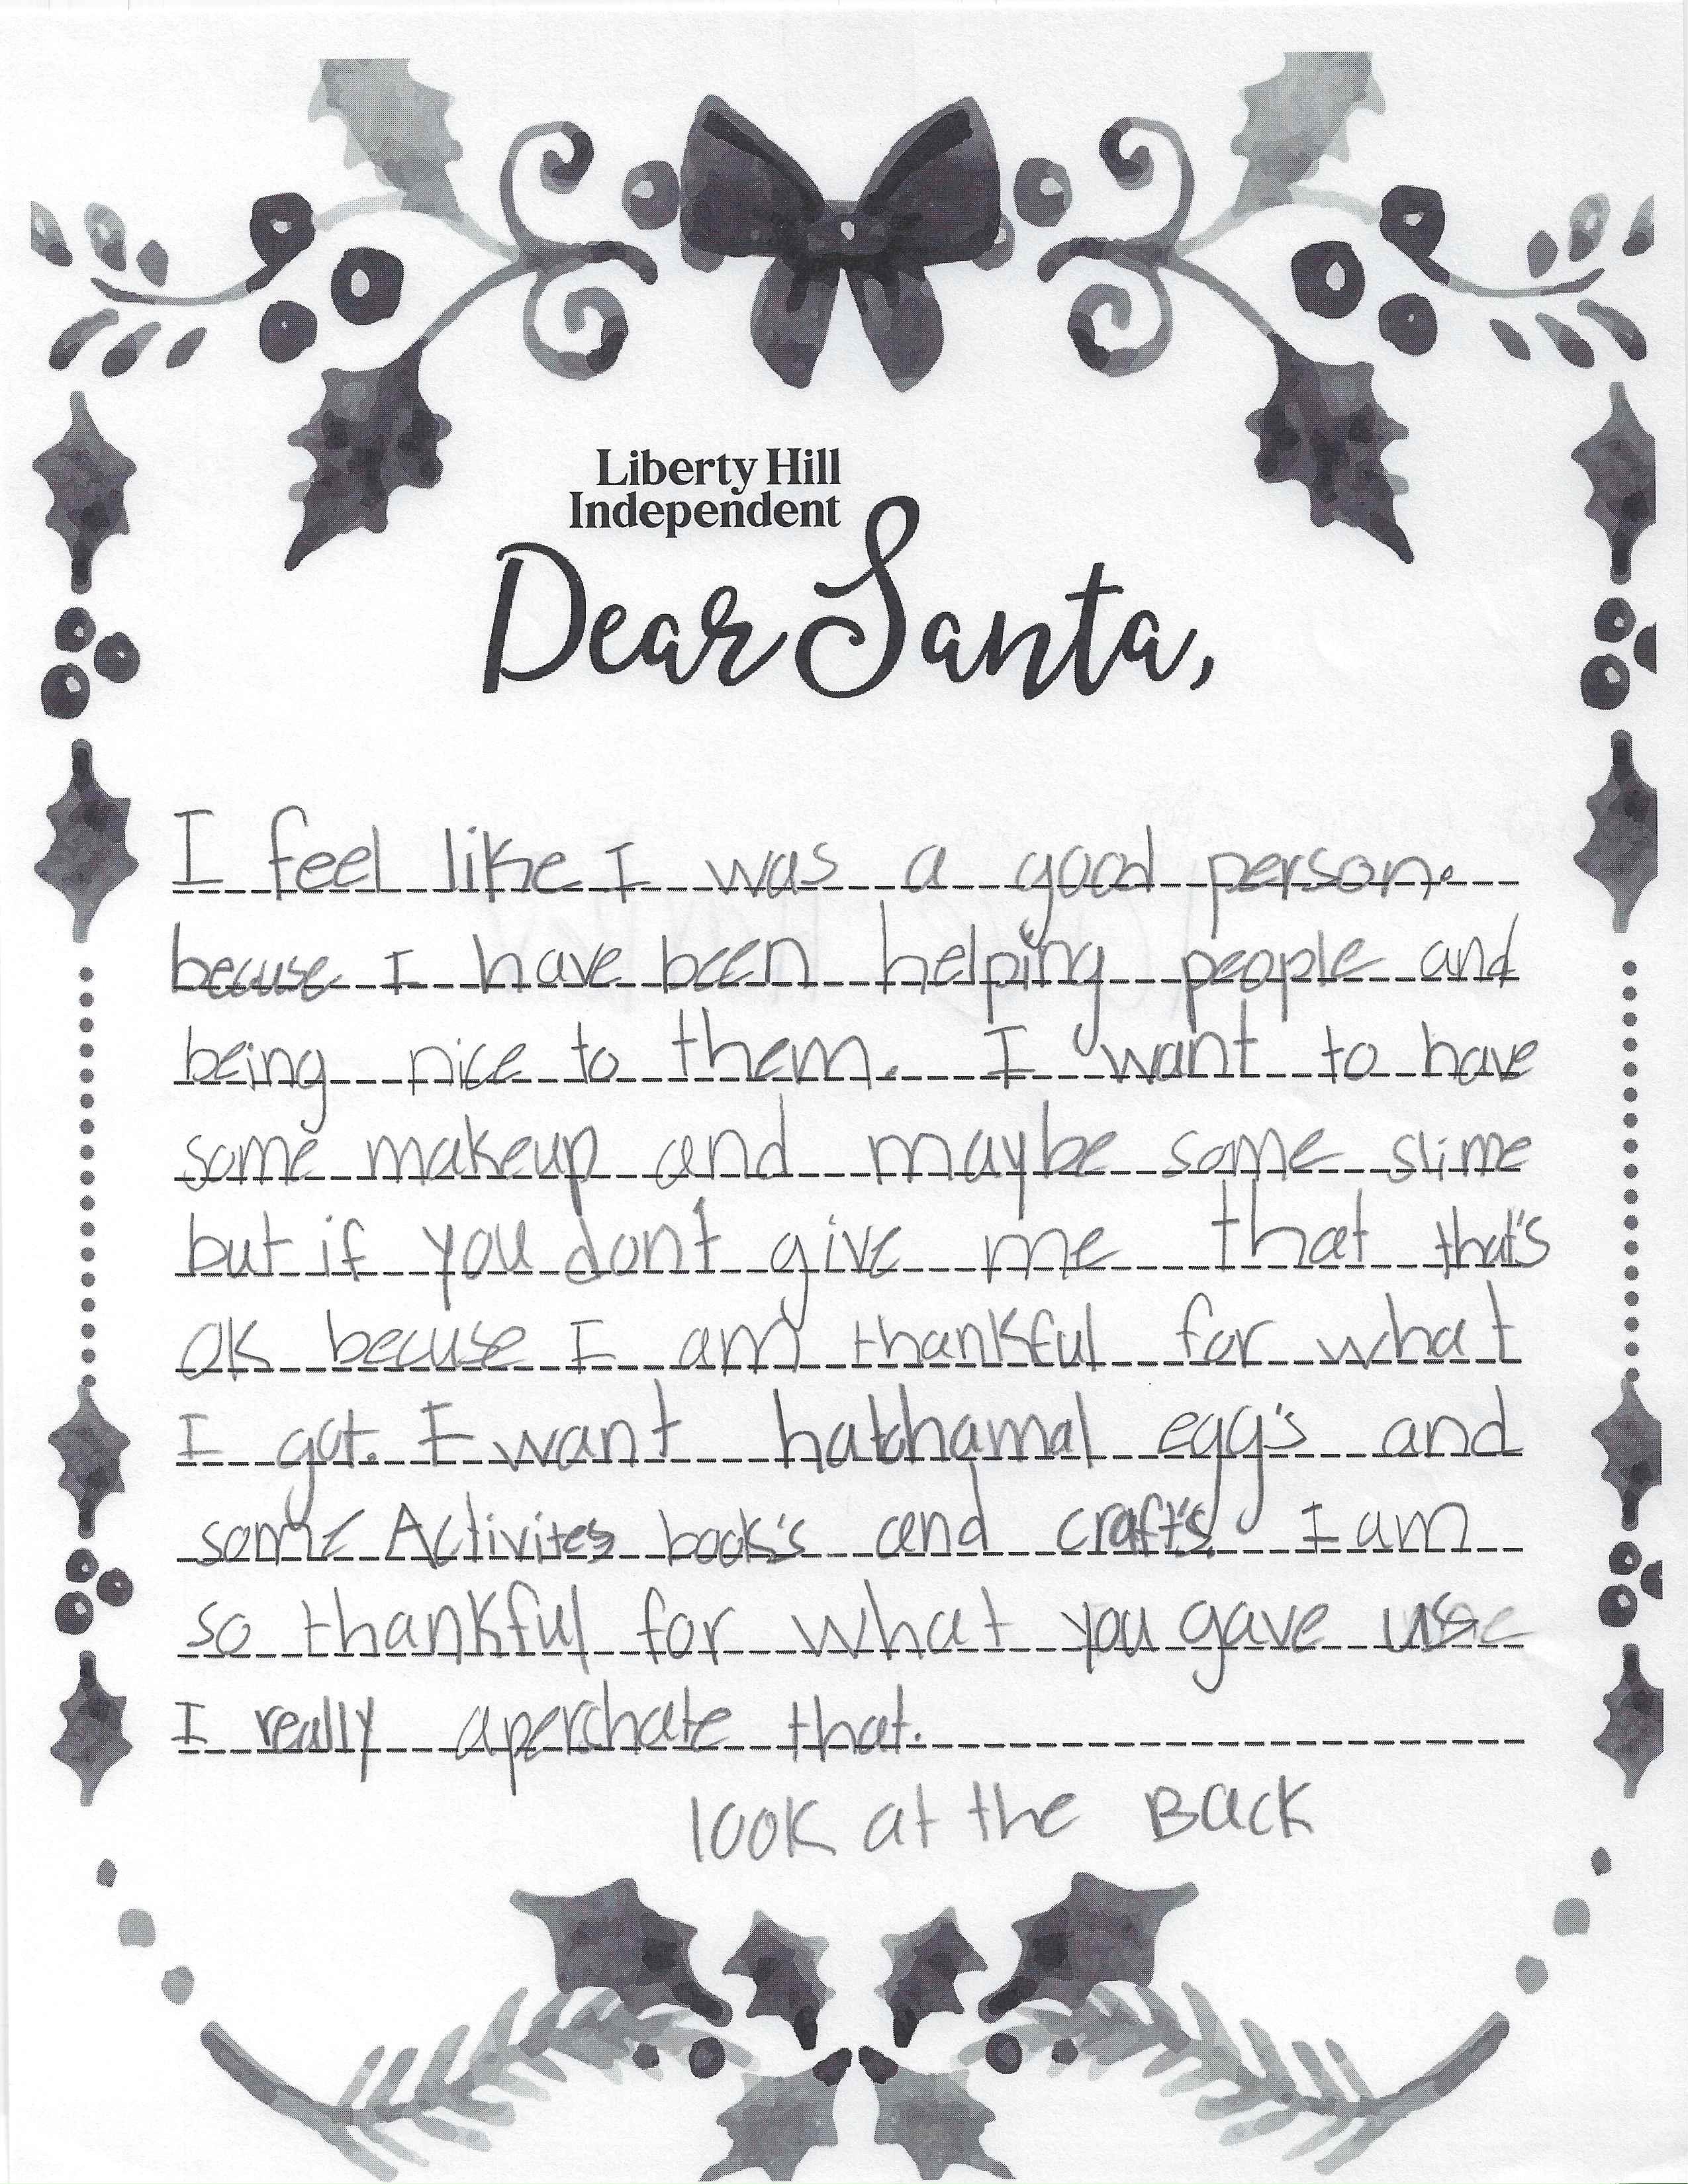 Liberty Hill
Independent
Dear Santa,
I feel like I was a good person.
becuse I have been helping people and
being nice to them. I want to have
some makeup and maybe some slime
but if you dont give me that that's
ok becuse I am thankful for what
I got. I want hatchamal egg's and
some Activites book's and craft's I am
so thankful for what you gave us
I really aperchate that.
look at the Back